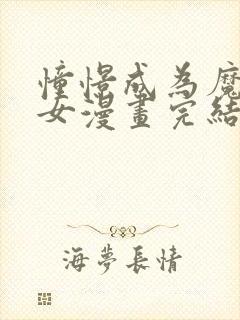 憧憬成為魔
女漫畫完結
海夢長情